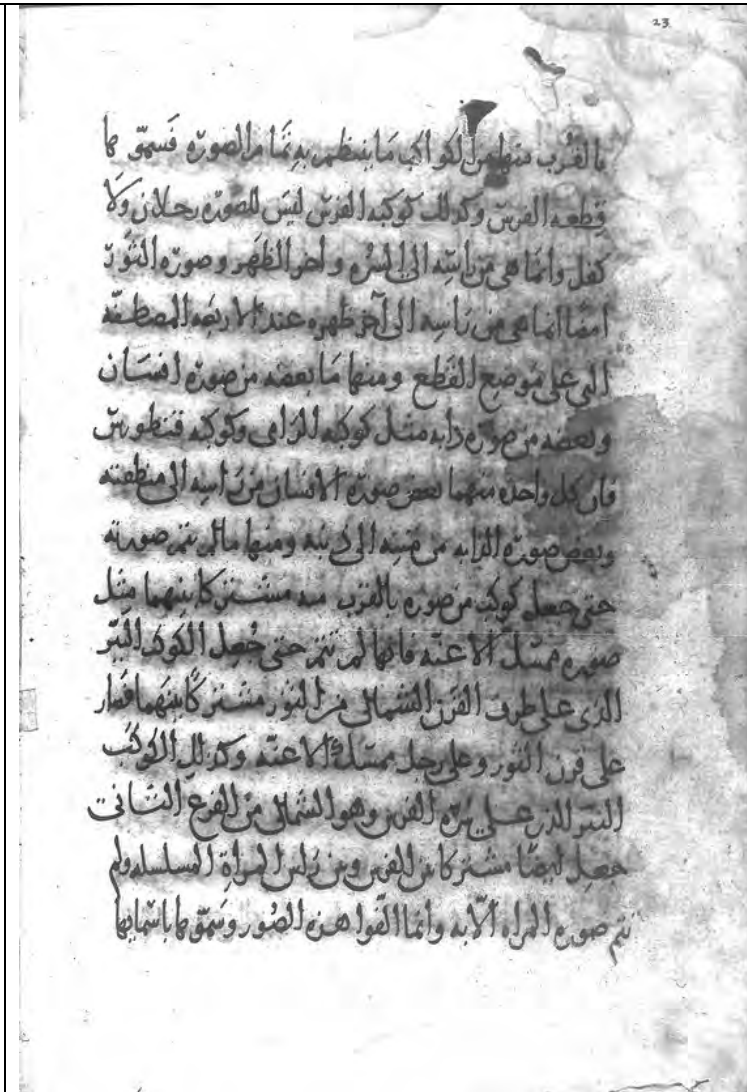 23
بالقرب منها من الكواكب ما ينتظم به تمام الصورة فسموها
قطعه الفرس وكذلك كوكبه الفرس ليس للصوره رجلان ولا
كفل وانما هي من راسه الى السره واخر الظهر وصوره الثور
ايضا انما هي من راسه الى آخر ظهره عند الاربعه المصطفه
التي على موضع القطع ومنها ما بعضه من صوره انسان
وبعضه من صوره دابه مثل كوكبه الرامى وكوكبه قنطورس
فان كل واحده منهما بعض صوره الانسان من راسه الى منطقته
وبعض صوره الدابه من الى ذنبه ومنها ما لم تتم صورته
حتى جعل كوكب من صوره بالقرب منه مشتركا بينهما مثل
صوره ممسك الاعنه فانها لم تتم حتى جعل الكوكب النير
الذى على طرف القرن الشمالى من الثور مشتركا بينهما فصار
على قرن الثور وعلى رجل ممسك الاعنه وكذلك الكوكب
النير الذى على سره الفرس وهو الشمالى من الفرع الثانى
جعل ايضا مشتركا بين الفرس وبين راس المراة المسلسله ولم
تتم صوره المراه الا به وانما الفوا هذه الصور وسموها باسمايها